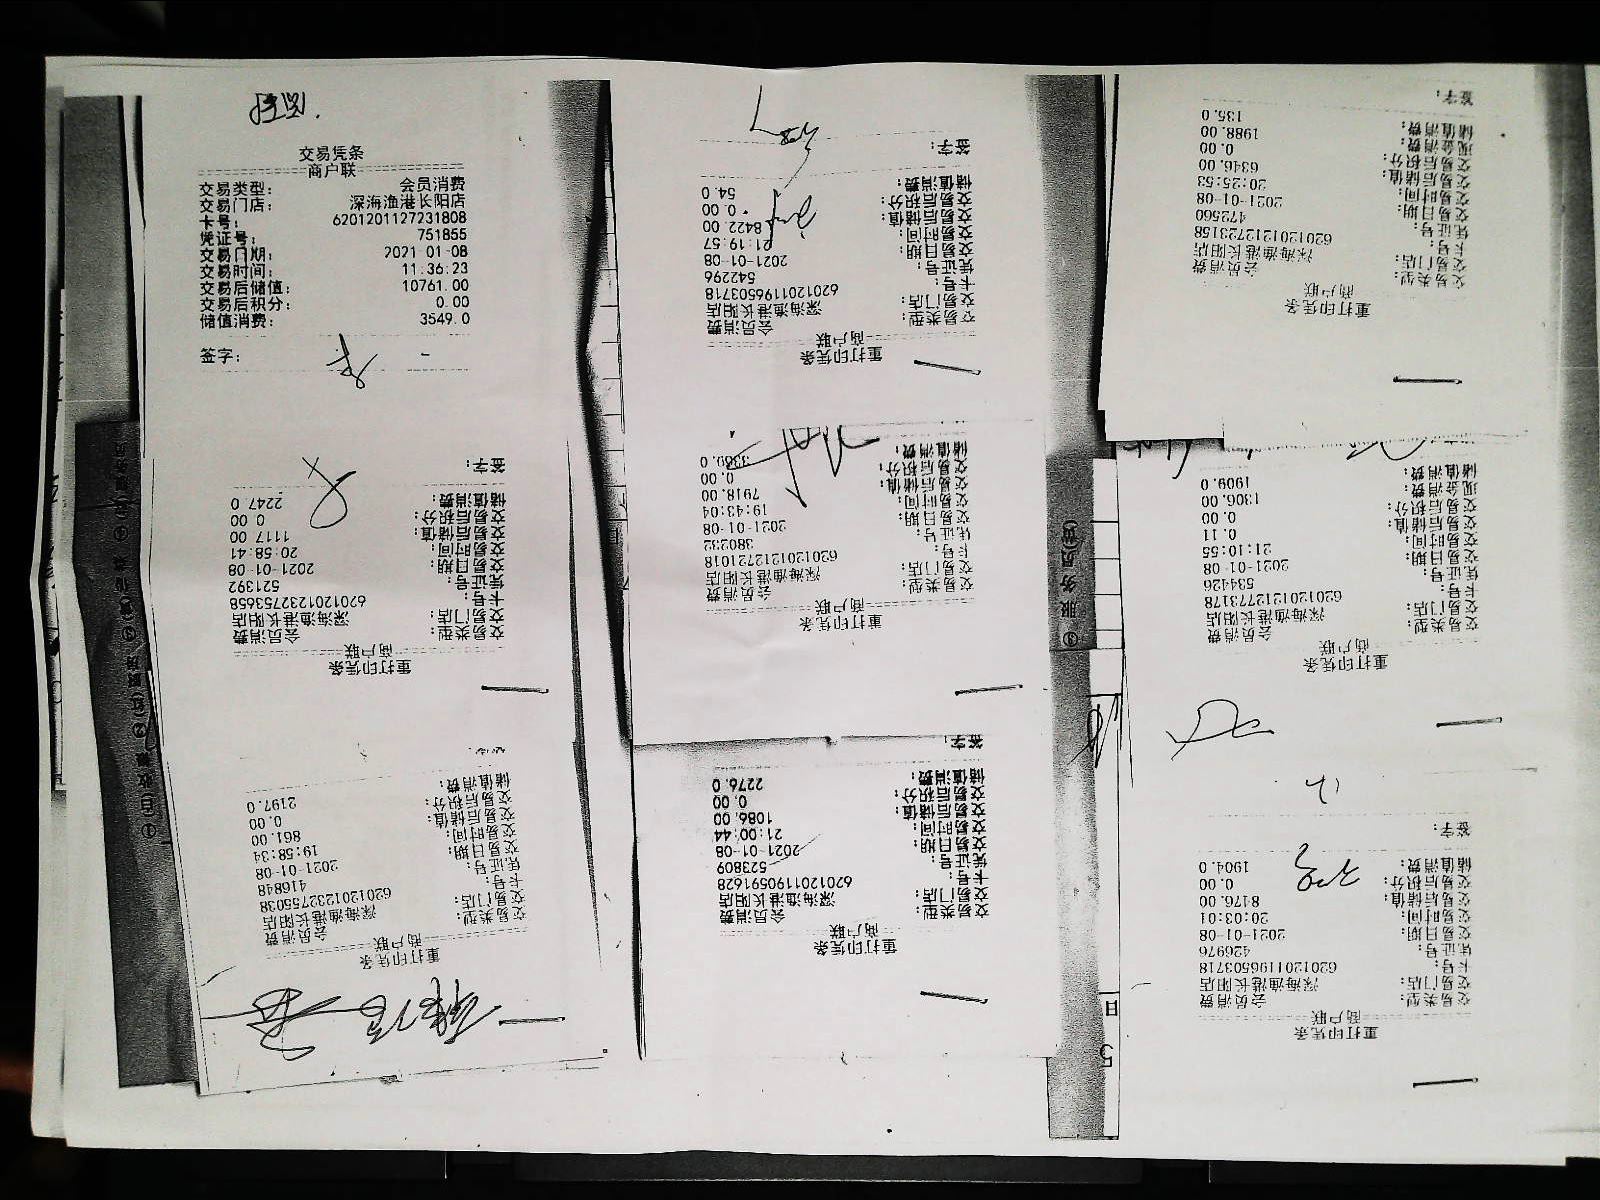 交易凭条
商户联
交易类型： 会员消费
交易门店： 深海渔港长阳店
卡号： 6201201127231808
凭证号： 751855
交易日期： 2021-01-08
交易时间： 11:36:23
交易后储值： 10761.00
交易后积分： 0.00
储值消费： 3549.0
签字：
重打印凭条
商户联
交易类型： 会员消费
交易门店： 深海渔港长阳店
卡号： 6201201196503718
凭证号： 542296
交易日期： 2021-01-08
交易时间： 21:19:57
交易后储值： 8422.00
交易后积分： 0.00
储值消费： 54.0
签字：
重打印凭条
商户联
交易类型： 会员消费
交易门店： 深海渔港长阳店
卡号： 6201201212723158
凭证号： 472560
交易日期： 2021-01-08
交易时间： 20:25:53
交易后储值： 6346.00
交易后积分： 0.00
现金消费： 1988.00
储值消费： 135.0
签字：
重打印凭条
商户联
交易类型： 会员消费
交易门店： 深海渔港长阳店
卡号： 6201201232753658
凭证号： 521392
交易日期： 2021-01-08
交易时间： 20:58:41
交易后储值： 1117.00
交易后积分： 0.00
储值消费： 2247.0
签字：
重打印凭条
商户联
交易类型： 会员消费
交易门店： 深海渔港长阳店
卡号： 6201201212721018
凭证号： 380232
交易日期： 2021-01-08
交易时间： 19:43:04
交易后储值： 7918.00
交易后积分： 0.00
储值消费：
重打印凭条
商户联
交易类型： 会员消费
交易门店： 深海渔港长阳店
卡号： 6201201212773178
凭证号： 534426
交易日期： 2021-01-08
交易时间： 21:10:55
交易后储值： 0.11
交易后积分： 0.00
现金消费： 1306.00
储值消费： 1909.0
重打印凭条
商户联
交易类型： 会员消费
交易门店： 深海渔港长阳店
卡号： 6201201232755038
凭证号： 416848
交易日期： 2021-01-08
交易时间： 19:58:34
交易后储值： 861.00
交易后积分： 0.00
储值消费： 2197.0
重打印凭条
商户联
交易类型： 会员消费
交易门店： 深海渔港长阳店
卡号： 6201201190591628
凭证号： 523809
交易日期： 2021-01-08
交易时间： 21:00:44
交易后储值： 1086.00
交易后积分： 0.00
储值消费： 2276.0
签字：
重打印凭条
商户联
交易类型： 会员消费
交易门店： 深海渔港长阳店
卡号： 6201201196503718
凭证号： 426976
交易日期： 2021-01-08
交易时间： 20:03:01
交易后储值： 8476.00
交易后积分： 0.00
储值消费： 1904.0
签字：
③服务员(黄)
日
5